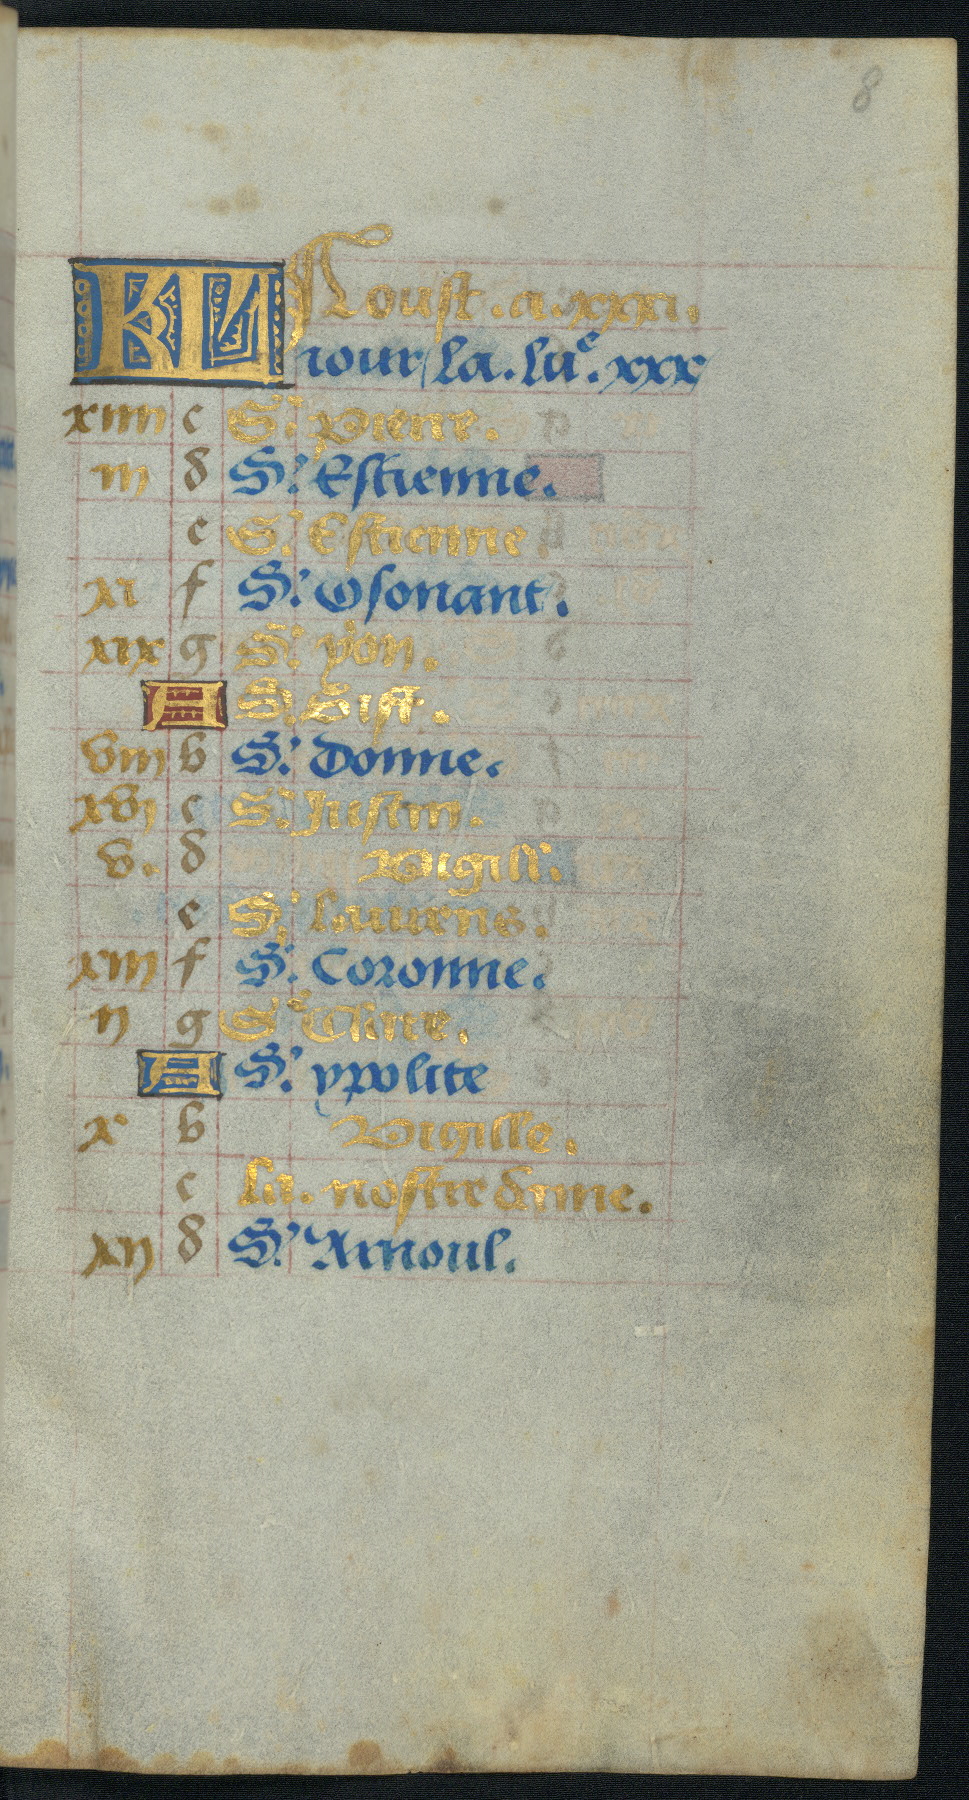 8
KL Aoust. a. xxxi.
iour / la. lue. xxx
xiiii c S. Pierre.
iii d S. Estienne.
e S. Estienne.
xi f S. Osonant.
xix g S. yon.
A S. Sist.
viii b S. Donne.
xvi c S. Justin.
v. d Vigill.
e S. laurens.
xiii f S. Coronne.
ii g Se Clere.
A S. ypolite
x b Vigille.
c la. nostre dame.
xii d S. Arnoul.